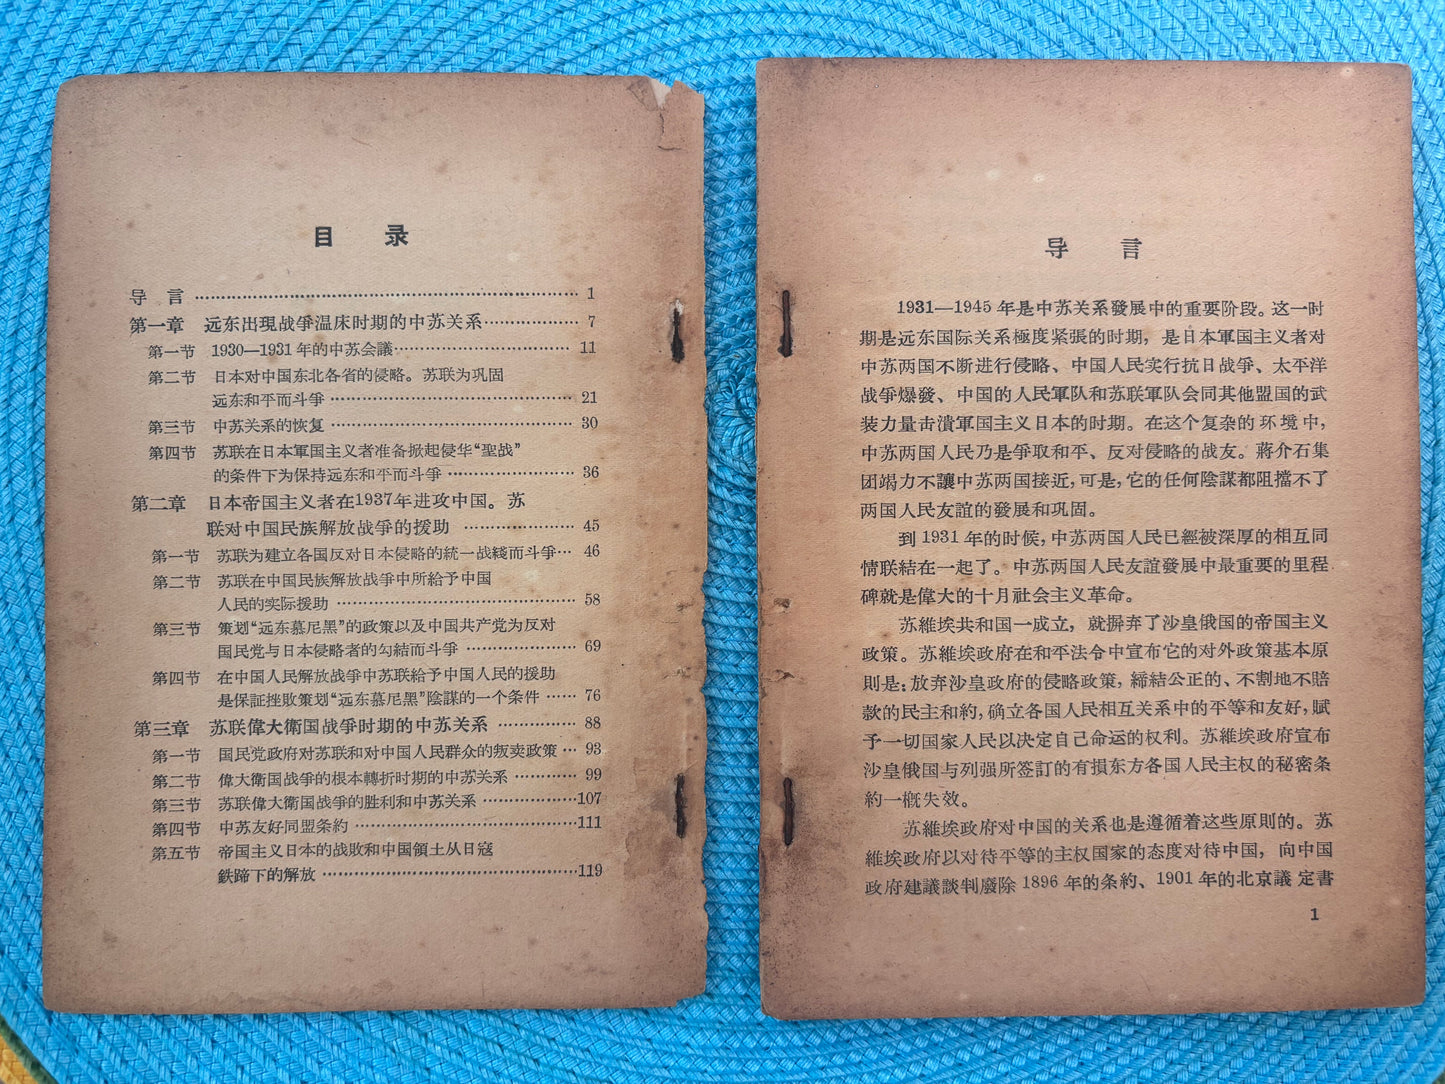 目 录
导 言 …… 1
第一章 远东出現战爭温床时期的中苏关系 …… 7
第一节 1930—1931 年的中苏会議 …… 11
第二节 日本对中国东北各省的侵略。苏联为巩固
远东和平而斗爭 …… 21
第三节 中苏关系的恢复 …… 30
第四节 苏联在日本軍国主义者准备掀起侵华“聖战”
的条件下为保持远东和平而斗爭 …… 36
第二章 日本帝国主义者在1937年进攻中国。苏
联对中国民族解放战爭的援助 …… 45
第一节 苏联为建立各国反对日本侵略的統一战綫而斗爭 … 46
第二节 苏联在中国民族解放战爭中所給予中国
人民的实际援助 …… 58
第三节 策划“远东慕尼黑”的政策以及中国共产党为反对
国民党与日本侵略者的勾結而斗爭 …… 69
第四节 在中国人民解放战爭中苏联給予中国人民的援助
是保証挫敗策划“远东慕尼黑”陰謀的一个条件 …… 76
第三章 苏联偉大衛国战爭时期的中苏关系 …… 88
第一节 国民党政府对苏联和对中国人民群众的叛卖政策 … 93
第二节 偉大衛国战爭的根本轉折时期的中苏关系 …… 99
第三节 苏联偉大衛国战爭的胜利和中苏关系 …… 107
第四节 中苏友好同盟条約 …… 111
第五节 帝国主义日本的战敗和中国領土从日寇
鉄蹄下的解放 …… 119
导 言
1931—1945 年是中苏关系發展中的重要阶段。这一时
期是远东国际关系極度紧張的时期，是日本軍国主义者对
中苏两国不断进行侵略、中国人民实行抗日战爭、太平洋
战爭爆發、中国的人民軍队和苏联軍队会同其他盟国的武
装力量击潰軍国主义日本的时期。在这个复杂的环境中，
中苏两国人民乃是爭取和平、反对侵略的战友。蔣介石集
团竭力不讓中苏两国接近，可是，它的任何陰謀都阻擋不了
两国人民友誼的發展和巩固。
到 1931 年的时候，中苏两国人民已經被深厚的相互同
情联結在一起了。中苏两国人民友誼發展中最重要的里程
碑就是偉大的十月社会主义革命。
苏維埃共和国一成立，就摒弃了沙皇俄国的帝国主义
政策。苏維埃政府在和平法令中宣布它的对外政策基本原
則是：放弃沙皇政府的侵略政策，締結公正的、不割地不賠
款的民主和約，确立各国人民相互关系中的平等和友好，賦
予一切国家人民以决定自己命运的权利。苏維埃政府宣布
沙皇俄国与列强所签訂的有損东方各国人民主权的秘密条
約一概失效。
苏維埃政府对中国的关系也是遵循着这些原則的。苏
維埃政府以对待平等的主权国家的态度对待中国，向中国
政府建議談判廢除 1896 年的条約、1901 年的北京議定書
1